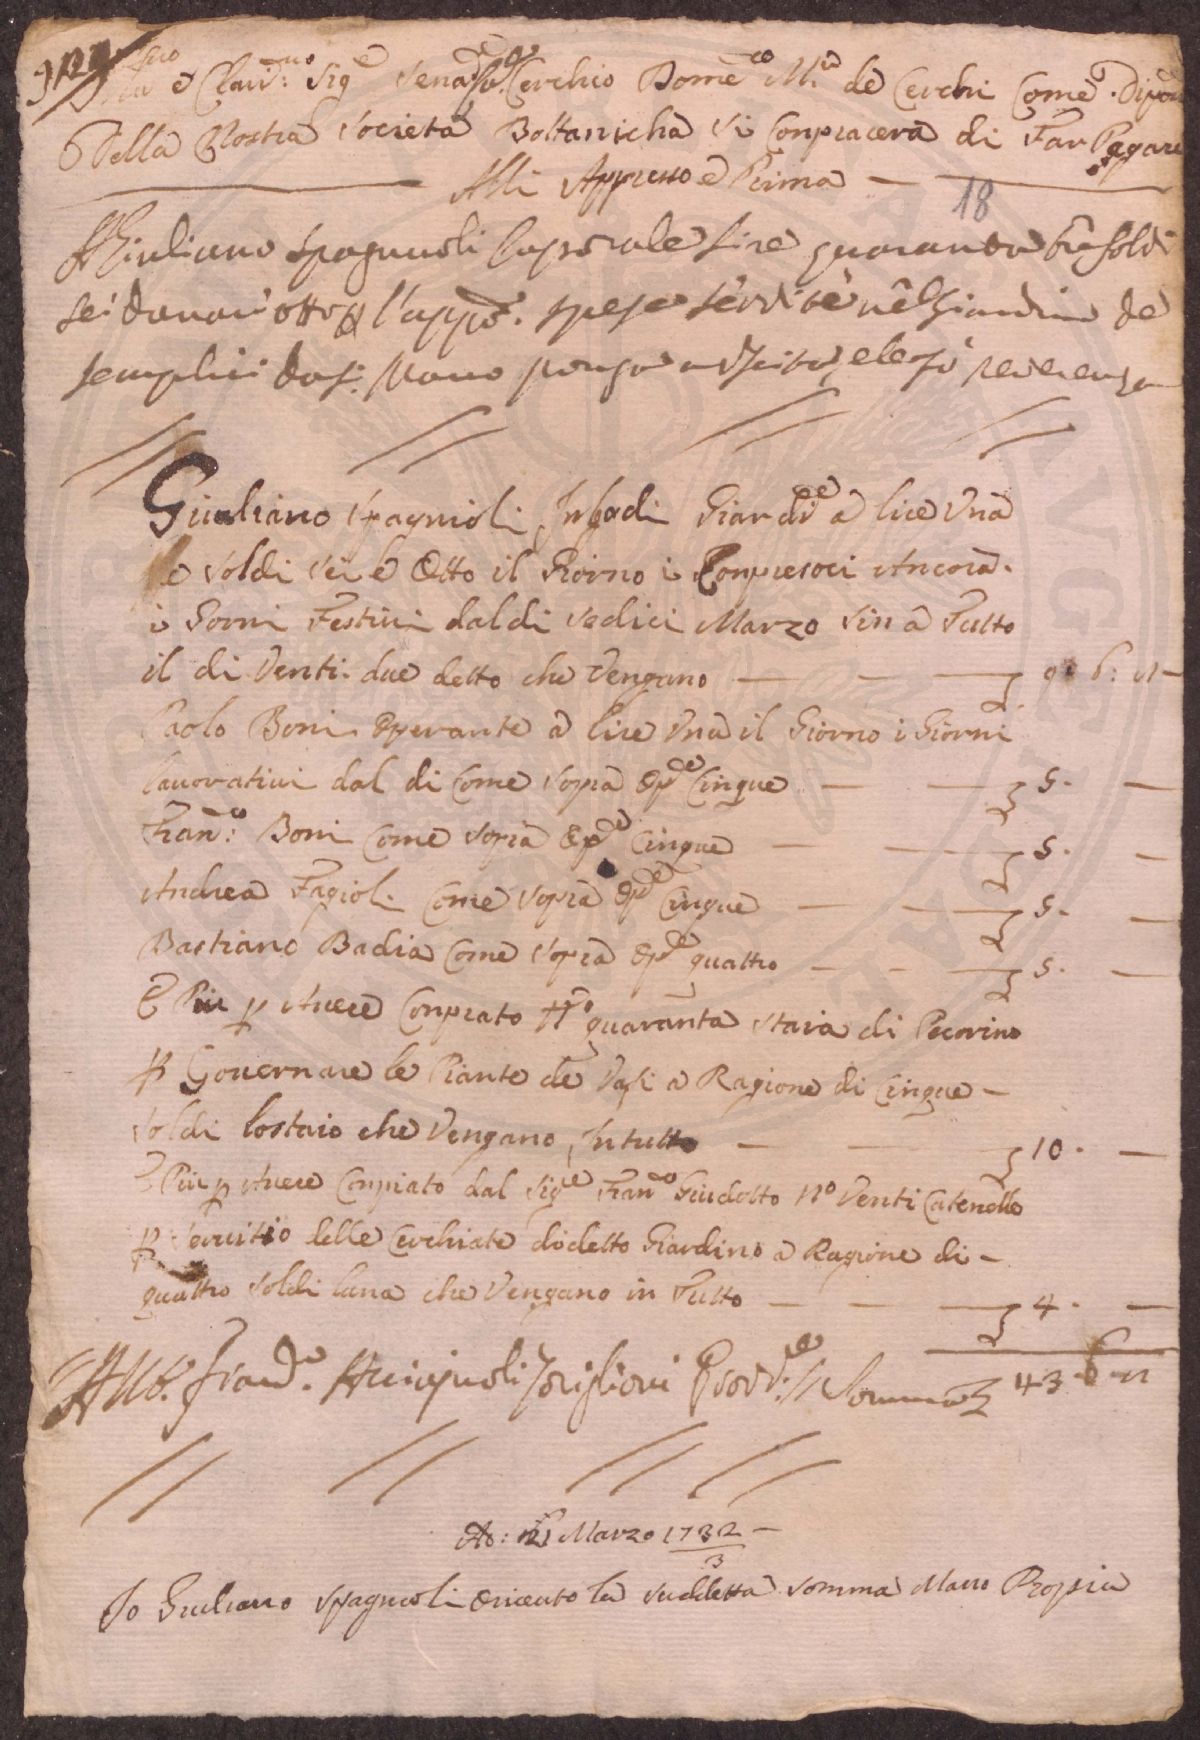 e Clarmo: Sigre Senare Cerchio Domeco Ma de Cerchi Come
Della Nostra Società Bottanicha Si Conpiacerà di Far Pagare
Alli Appresso e Prima
18
A Giuliano Spagnuoli Caporale Lire quaranda tre Soldi
sei danari otto p l'appo. spese servite nel Giardino de
semplici
Giuliano Spagnioli Giardre a lire Una
e soldi sei e Otto il Giorno i Conpresoci Ancora
i Gorni Festivi dal di sedici Marzo Sin a Tutto
il di Venti due detto che Vengano 9. 6: 8
Paolo Boni Operante a lire Una il Giorno i Giorni
lavorativi dal di Come Sopra Opre Cinque 5.
Franco: Boni Come Sopra Opre Cinque 5.
Andrea Fagioli Come Sopra Opre Cinque 5.
Bastiano Badia Come Sopra Opre quattro 5.
E Piu p Avere Conprato No quaranta Staia di Pecorino
p Governare le Piante de Vasi a Ragione di Cinque
Soldi lostaio che Vengano In tutto 10.
E Piu p Avere Conprato dal Sigre Franco Giudotto No Venti Catenelle
p Servitio delle Cerchiate di detto Giardino a Ragione di
quattro Soldi luna che Vengano in Tutto 4.
Somma 43 6 8
Marzo 1732/3
Io Giuliano Spagnuoli o ricevuto la suddetta somma Mano Propria